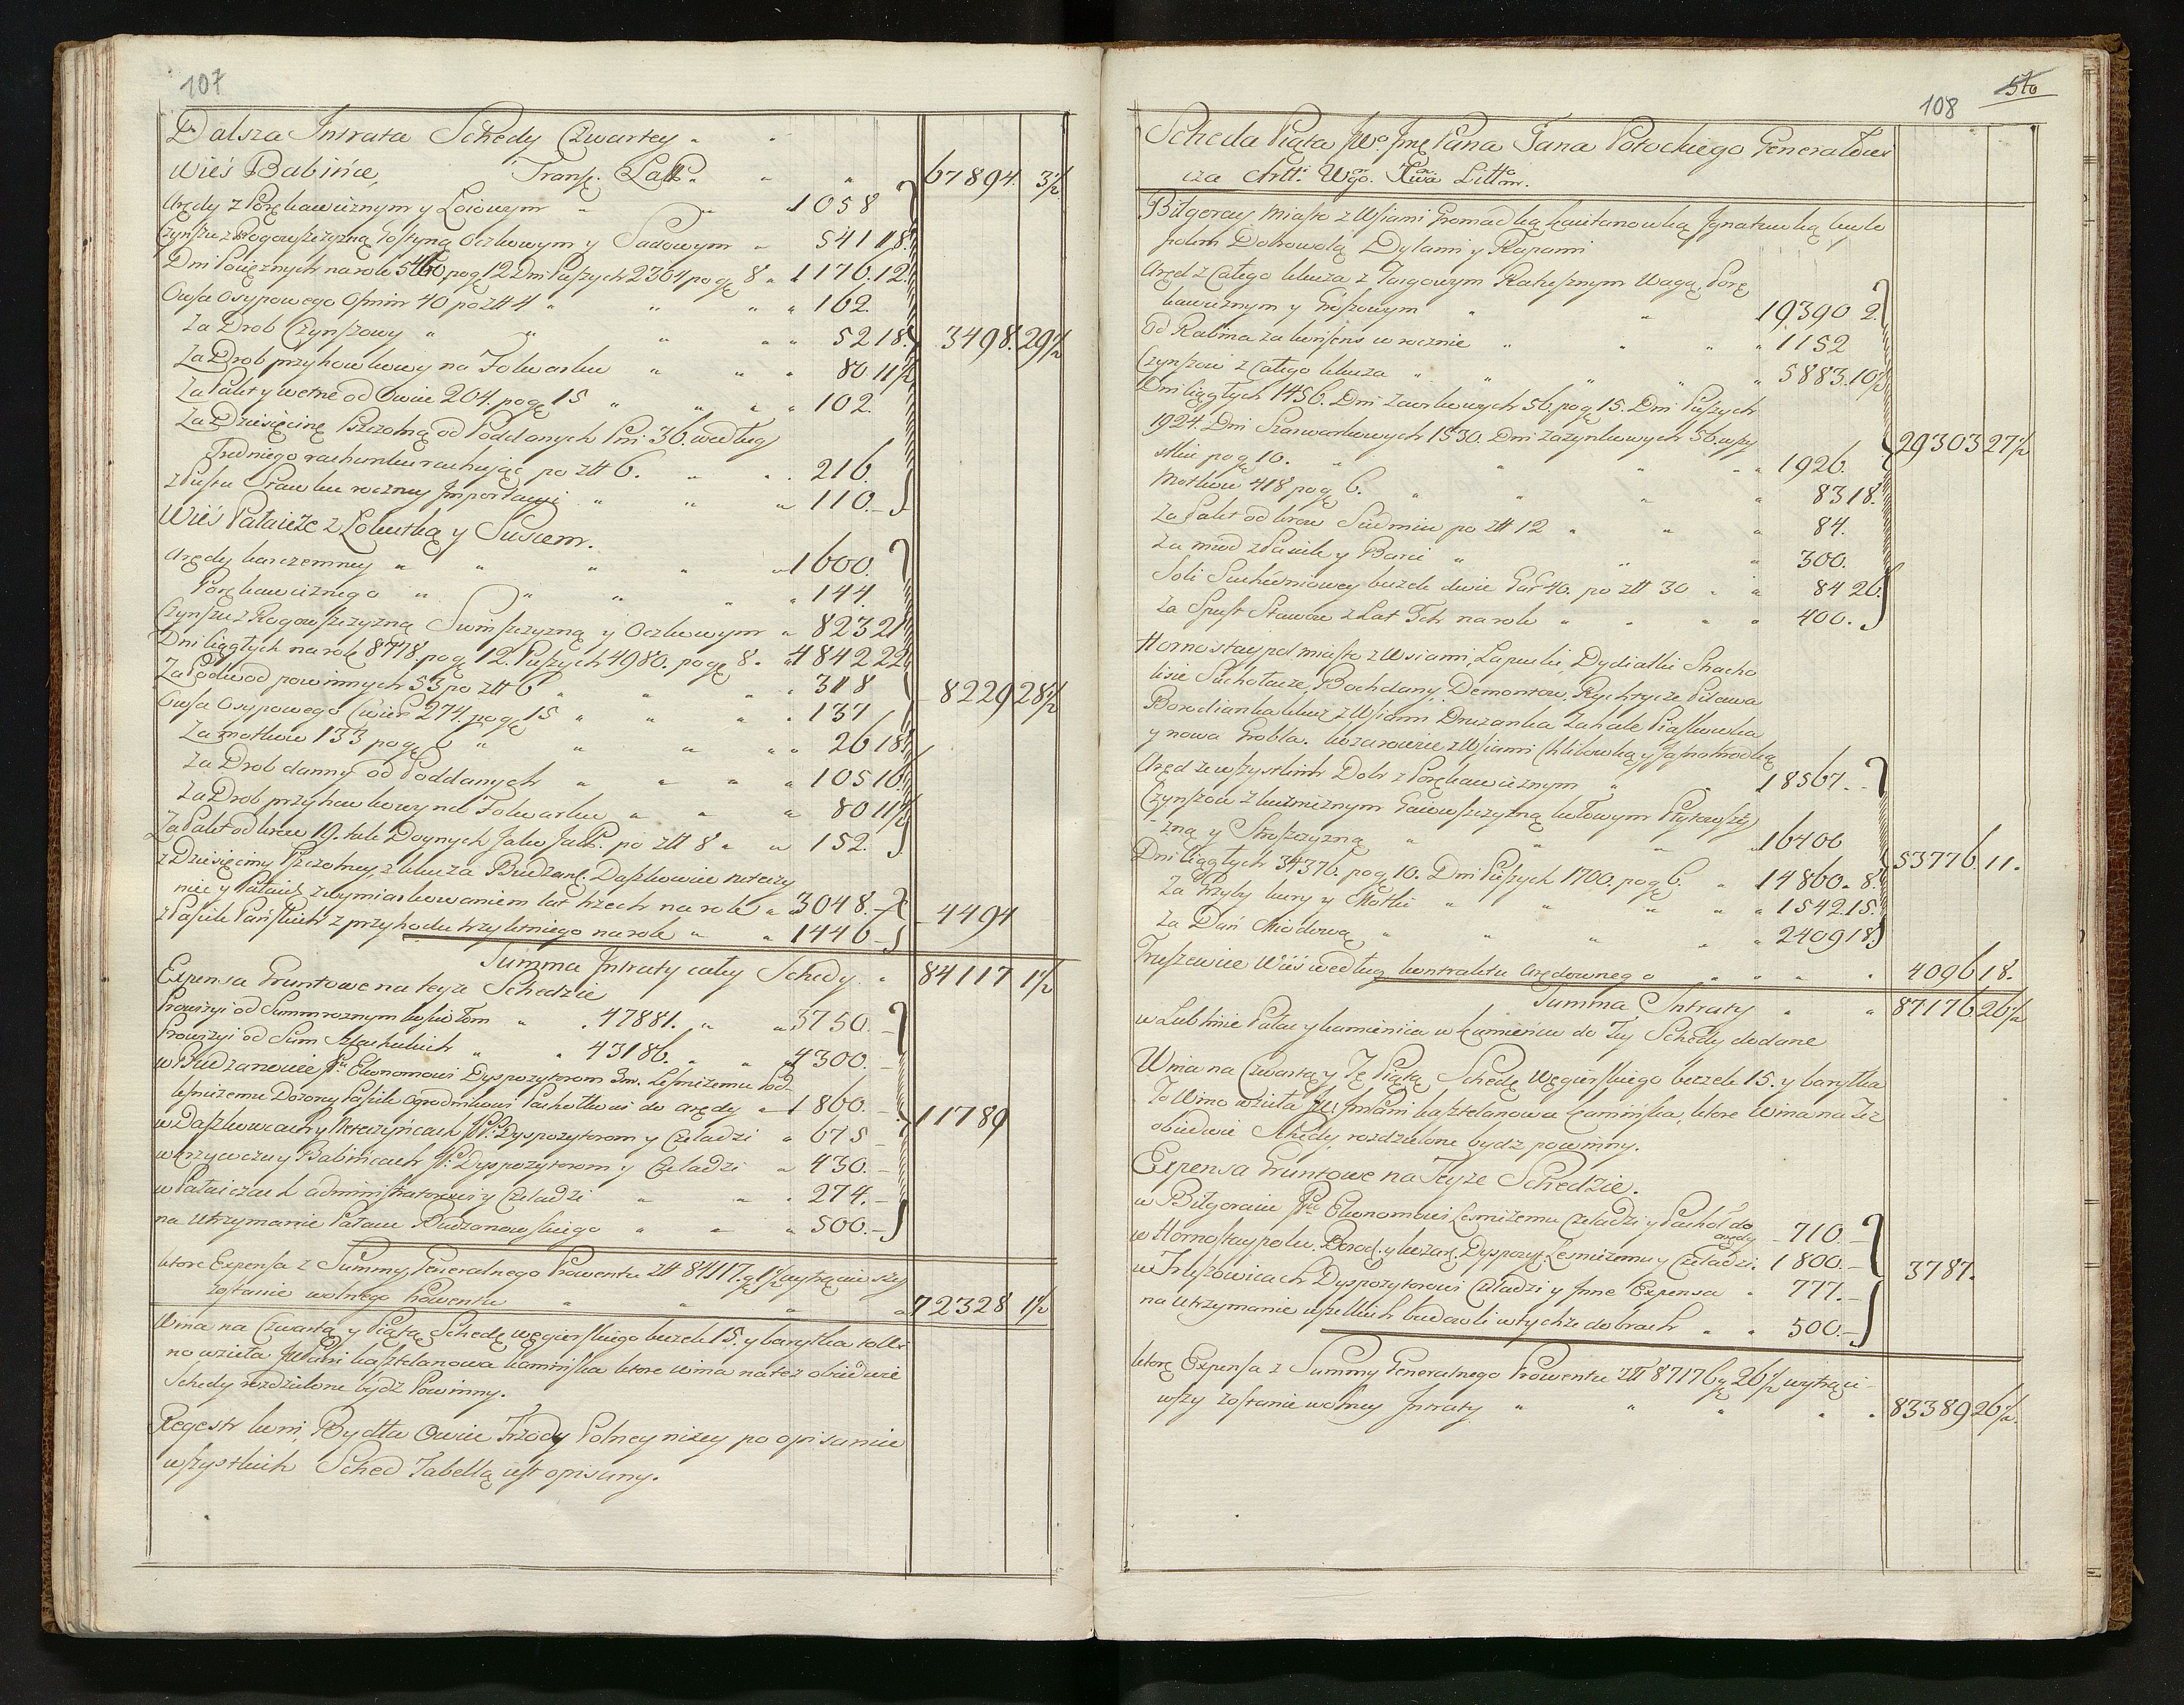 107
Dalsza Intrata Schedy Czwartey
Wieś Babińce, Transp. Lat. 67894. 3½
Arędy z Porękawicznym y Łoiowym 1058
Czynszu z Rogowszczyzną Gostyną Oczkowym y Sadowym 541 18.
Dni Pociężnych na rok po gę 12 Dni Pieszych 2304 po gę 8 1176.12.
Owsa Osypowego Osmin 40 po złł 4 162.
Za Drob Czynszowy 52 18. 3498. 29½
Za Drob przychowkowy na Folwarku 80 11½
Za Pakt y wełnę od Owiec 204 po gę 15 102.
Za Dziesięcinę Pszczolną od Poddanych Pni 36. według
Średniego rachunku rachując po złł 6. 216.
z Spustu Stawku roczney Importacyi 110.
Wieś Pataicze z Łokutką y Susiem.
Arędy karczemney 1600.
Porękawicznego 144.
Czynszu z Rogowszczyzną Swinszczyzną y Oczkowym 823 2½
Dni Ciągłych na rok 8718. po gę 12. Pieszych 4980. po gę 8. 4842 22.
Za Podwod powinnych 53 po złł 6 318 8229 28½
Owsa Osypowego Cwierć 274. po gę 15 137
Za motkow 133 po gę 6 26 18.
Za Drob danny od Poddanych 105 10.
Za Drob przychowkowy na Folwarku 80 11½
Za Pakt od krow 19. tak Doynych Jako Jało. po złł 8 152.
z Dziesięciny Pszczolney, z klucza Budzan. Daszkowiec
niec y Pataicz z wymiarkowaniem lat trzech na rok 3048. 4494
z Pasiek Pańskich z przychodu trzyletniego na rok 1446
Summa Intraty całey Schedy 84117 1½
Expensa Gruntowe na teyże Schedzie
Prowizyi od Summ roznym kościołom 47881. 3750.
Prowizyi od Sum Szlacheckich 43186. 4300.
w Budzanowie PP. Ekonomowi Dyspozytorom 3m. Leśniczemu Pod
leśniczemu Dozorcy Pasiek Ogrodnikowi Pachołkowi do arędy 1860. 11789
w Daszkowcach y PP. Dyspozytorom y Czeladzi 675
w Krzywczu y Babińcach P: Dyspozytorom y Czeladzi 430.
w Pataiczach administratorowi y Czeladzi 274.
na utrzymanie Pałacu Budzanowskiego 500.
ktore Expensa z Summy Generalnego Prowentu złł 84117. g 1½ wytrąciwszy
zostanie wolnego Prowentu 72328 1½
Wina na Czwartą y Piątą Schedę węgierskiego beczek 15. y barytka to wi
no wzieła JW Pani kasztelanowa kaminska ktore wina na też obiedwie
Schedy rozdzielone bydź Powinny.
Regestr koni, Bydła Owiec Trzody Polney niżey po opisaniu
wszystkich Sched Tabellą iest opisany.

108
Scheda Piąta JWo Jmę Pana Jana Potockiego Generałowi
cza Artt: Wgo. Xwa Litto.
Biłgoray miasto z Wsiami Gromadką Kaiitanowką Ignatowką
polem Dobrowolą Dylami y Kapami
Aręd z Całego klucza z Targowym Ratusznym Wagą. Porę
kawicznym y Groszowym 19390 2.
Od Rabina za konsens w rocznie 1152
Czynszow z Całego klucza 5883. 10½
Dni Ciągłych 1456. Dni Zaorkowych 56. po gę 15. Dni Pieszych
1924. Dni Szarwarkowych 1530. Dni Zazynkowych 56. wszy 29303 27½
stkie po gę 10. 1926.
Motkow 418 po gę 6. 83 18.
Za Pakt od krow Siedmiu po złł 12 84.
Za miod z Pasiek y Barci 300.
Soli Suchedniowey beczek dwie Gar 40. po złł 30 84 26.
Za Spust Stawow z Lat 3ch na rok 400.
Hornostaypol miasto z Wsiami, Łaputki, Dydiatki Stracho
lisie Suchołucze, Bochdany, Demontow, Rychtycze Pisawa
Borodianka klucz z Wsiami Druzanka Zahale Piaskowka
y nowa Grobla. kozarowicze z Wsiami Chlibowką y Jasnohrodką
Aręd ze wszystkich Dobr z Porękawicznym 18567.
Czynszow z kuźnicznym Gaiowszczyzną kotowym
zną y Stroszczyzną 16406 53776. 11.
Dni Ciągłych 34376. po gę 10. Dni Pieszych 1700. po gę 6. 14860. 8.
Za Grzyby kury y Motki 1542. 15.
Za Dań Miodową 2409 18.
Truszowice Wieś według kontraktu arędownego 4096 18.
Summa Intraty 87176 26½
w Lublinie Pałac y kamienica w Kamieńcu do Tey Schedy dodane
Wina na Czwartą y Tę Piątą Schedę Węgierskiego beczek 15. y barytka
To Wino wzieła JW JmPani kasztelanowa kaminska, ktore Wina na Też
obiedwie Schedy, rozdzielone bydź powinny.
Expensa Gruntowe na Teyże Schedzie.
w Biłgoraiu PP. Ekonomowi Leśniczemu Czeladzi y Pachoł do
arędy 710.
w Hornostaypolu. Borod. y kozar. Dyspozyt. Leśniczemu y Czeladzi. 1800. 3787.
w Truszowicach Dyspozytorowi Czeladzi y Inne Expensa 777.
na utrzymanie wszelkich budowli w tychże dobrach 500.
ktorę Expensa z Summy Generalnego Prowentu złł 87176 g 26½ wytrąci
wszy zostanie wolney Intraty 83389 26½